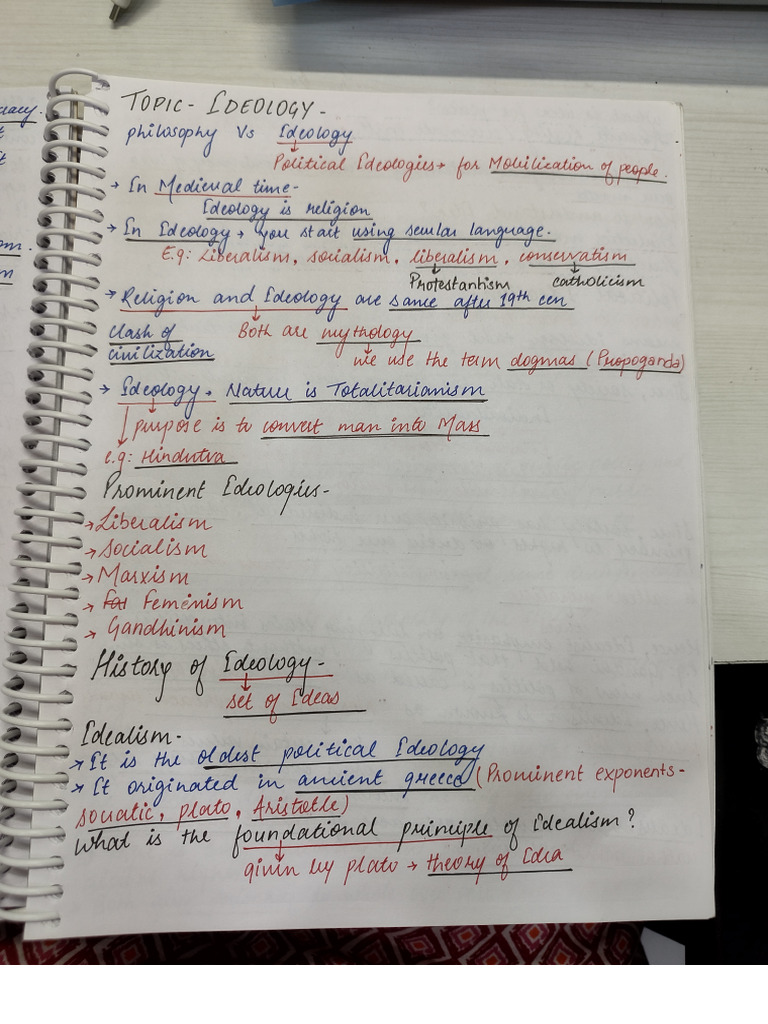 TOPIC - IDEOLOGY -
philosophy Vs Ideology
Political Ideologies → for Mobilization of people.
→ In Medieval time -
Ideology is religion
→ In Ideology → you start using secular language.
E.g: Liberalism, socialism, liberalism, conservatism
Protestantism catholicism
→ Religion and Ideology are same after 19th cen
Clash of Both are mythology
civilization
we use the term dogmas (Propoganda)
→ Ideology. Nature is Totalitarianism
purpose is to convert man into Mass
e.g: Hindutva
Prominent Ideologies -
→ Liberalism
→ Socialism
→ Marxism
→ Feminism
→ Gandhinism
History of Ideology -
set of Ideas
Idealism -
→ It is the oldest political Ideology
→ It originated in ancient greece (Prominent exponents -
socratic, plato, Aristotle)
What is the foundational principle of idealism?
given by plato → theory of Idea